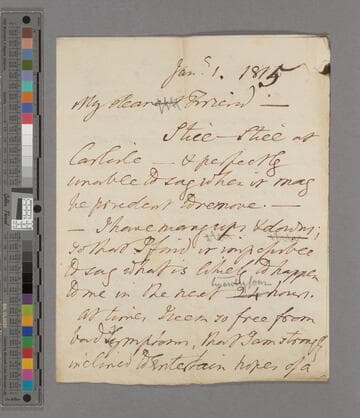 Jany 1. 1815
My dear Friend —
Still — Still at
Carlisle — & perfectly
unable to say when it may
be prudent to remove. —
— I have many ups & downs;
so that I find it impossible
to say what is likely to happen
to me in the next 24 hours.
twenty four
at times I seem so free from
bad symptoms, that I am strongly
inclined to entertain hopes of a